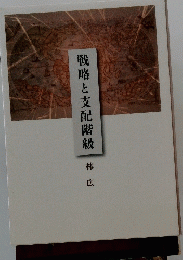 戦略と支配階級